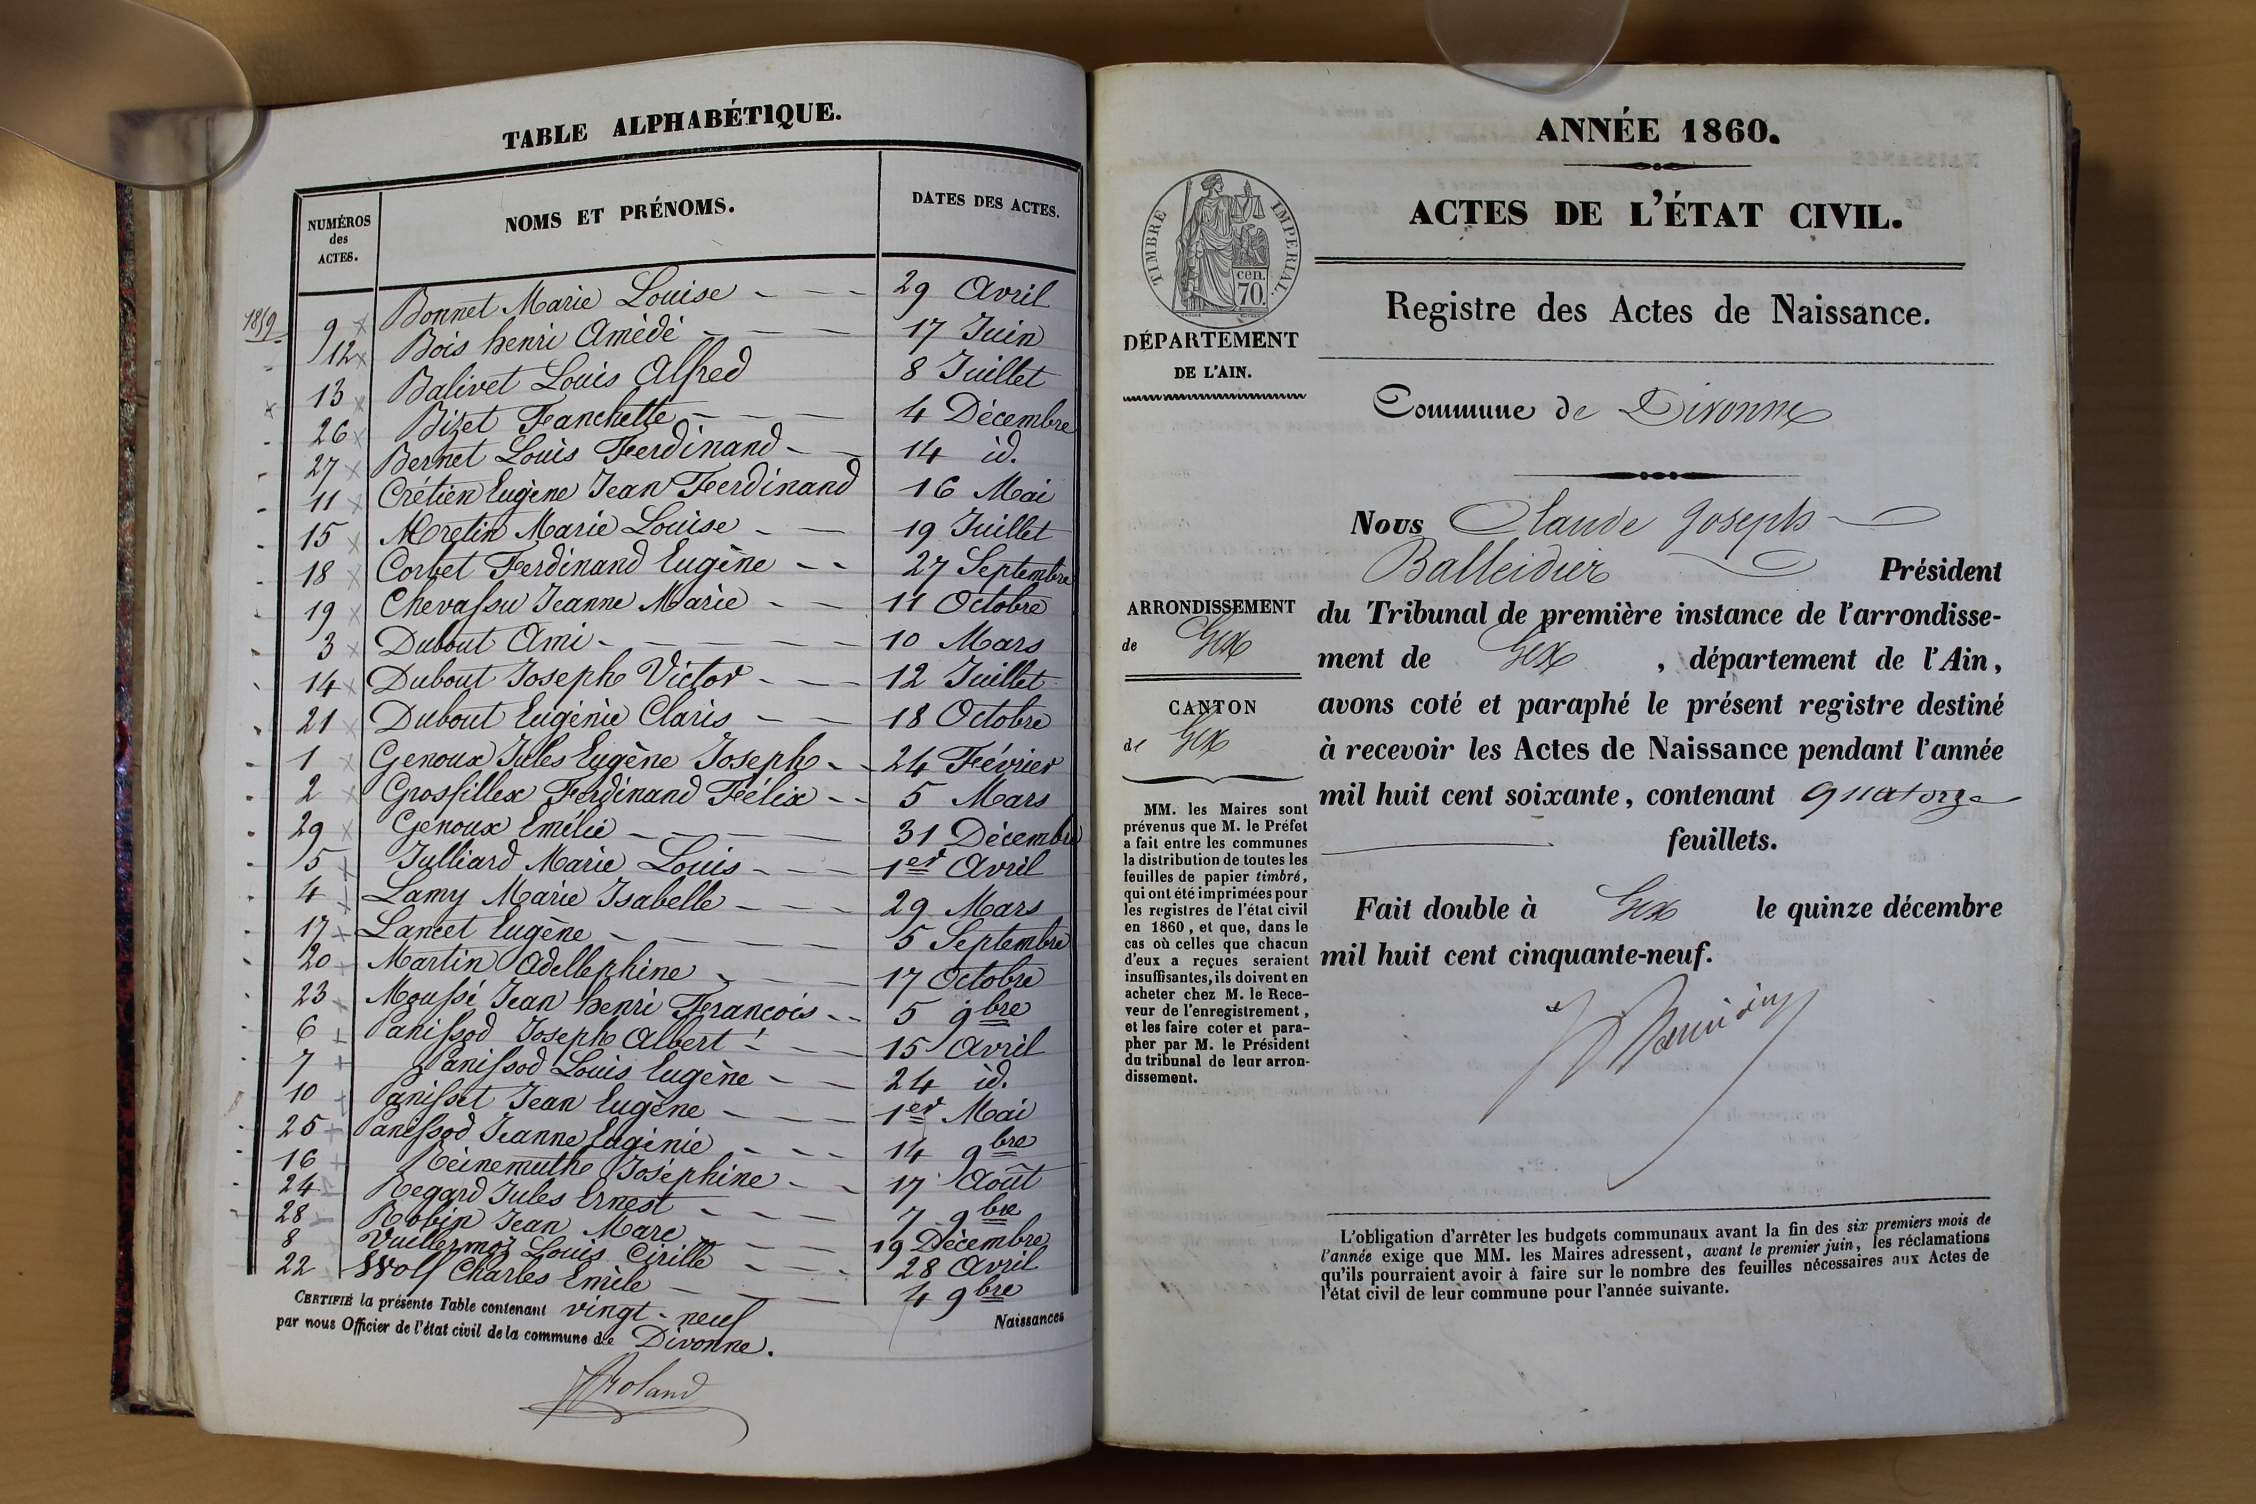 TABLE ALPHABÉTIQUE.
NUMÉROS des ACTES. NOMS ET PRÉNOMS. DATES DES ACTES.
1859
9 Bonnet Marie Louise 29 Avril
12 Bois henri Amédé 17 Juin
13 Balivet Louis Alfred 8 Juillet
26 Bizet Fanchette 4 Décembre
27 Bernet Louis Ferdinand 14 id.
11 Crétien Eugène Jean Ferdinand 16 Mai
15 Cretin Marie Louise 19 Juillet
18 Corbet Ferdinand Eugène 27 Septembre
19 Chevassu Jeanne Marie 11 Octobre
3 Dubout Ami 10 Mars
14 Dubout Joseph Victor 12 Juillet
21 Dubout Eugénie Claris 18 Octobre
1 Genoux Jules Eugène Joseph 24 Février
2 Grosfillex Ferdinand Félix 5 Mars
29 Genoux Emélie 31 Décembre
5 Julliard Marie Louis 1er Avril
4 Lamy Marie Isabelle 29 Mars
17 Lancet Eugène 5 Septembre
20 Martin Adellephine 17 Octobre
23 Moussé Jean henri François 5 9bre
6 Panissod Joseph Albert 15 Avril
7 Panissod Louis Eugène 24 id.
10 Panisset Jean Eugène 1er Mai
25 Panissod Jeanne Eugénie 14 9bre
16 Reinemuth Joséphine 17 Août
24 Regard Jules Ernest 7 9bre
28 Robin Jean Marc 19 Décembre
8 Vuillermoz Louis Cirille 28 Avril
22 Wolf Charles Emile 4 9bre
CERTIFIÉ la présente Table contenant vingt-neuf Naissances
par nous Officier de l'état civil de la commune de Divonne.
Roland
ANNÉE 1860.
ACTES DE L'ÉTAT CIVIL.
TIMBRE IMPÉRIAL.
cen.
70.
DÉPARTEMENT
DE L'AIN.
Registre des Actes de Naissance.
Commune de Divonne
Nous Claude Joseph
Balleidier Président
du Tribunal de première instance de l'arrondisse-
ment de Gex, département de l'Ain,
avons coté et paraphé le présent registre destiné
à recevoir les Actes de Naissance pendant l'année
mil huit cent soixante, contenant quatorze
feuillets.
Fait double à Gex le quinze décembre
mil huit cent cinquante-neuf.
ARRONDISSEMENT
de Gex
CANTON
de Gex
MM. les Maires sont
prévenus que M. le Préfet
a fait entre les communes
la distribution de toutes les
feuilles de papier timbré,
qui ont été imprimées pour
les registres de l'état civil
en 1860, et que, dans le
cas où celles que chacun
d'eux a reçues seraient
insuffisantes, ils doivent en
acheter chez M. le Rece-
veur de l'enregistrement,
et les faire coter et para-
pher par M. le Président
du tribunal de leur arron-
dissement.
L'obligation d'arrêter les budgets communaux avant la fin des six premiers mois de
l'année exige que MM. les Maires adressent, avant le premier juin, les réclamations
qu'ils pourraient avoir à faire sur le nombre des feuilles nécessaires aux Actes de
l'état civil de leur commune pour l'année suivante.